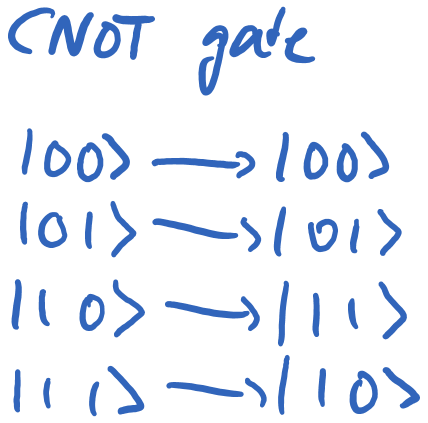 CNOT gate
|00⟩ → |00⟩
|01⟩ → |01⟩
|10⟩ → |11⟩
|11⟩ → |10⟩